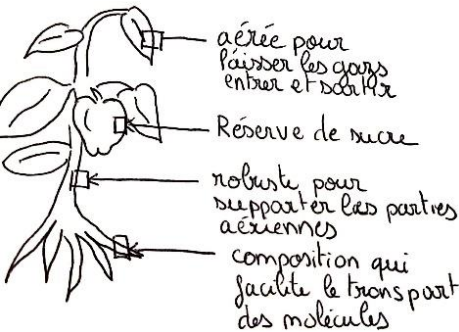 aérée pour
laisser les gazs
entrer et sortir
Réserve de sucre
robuste pour
supporter les parties
aériennes
composition qui
facilite le transport
des molécules